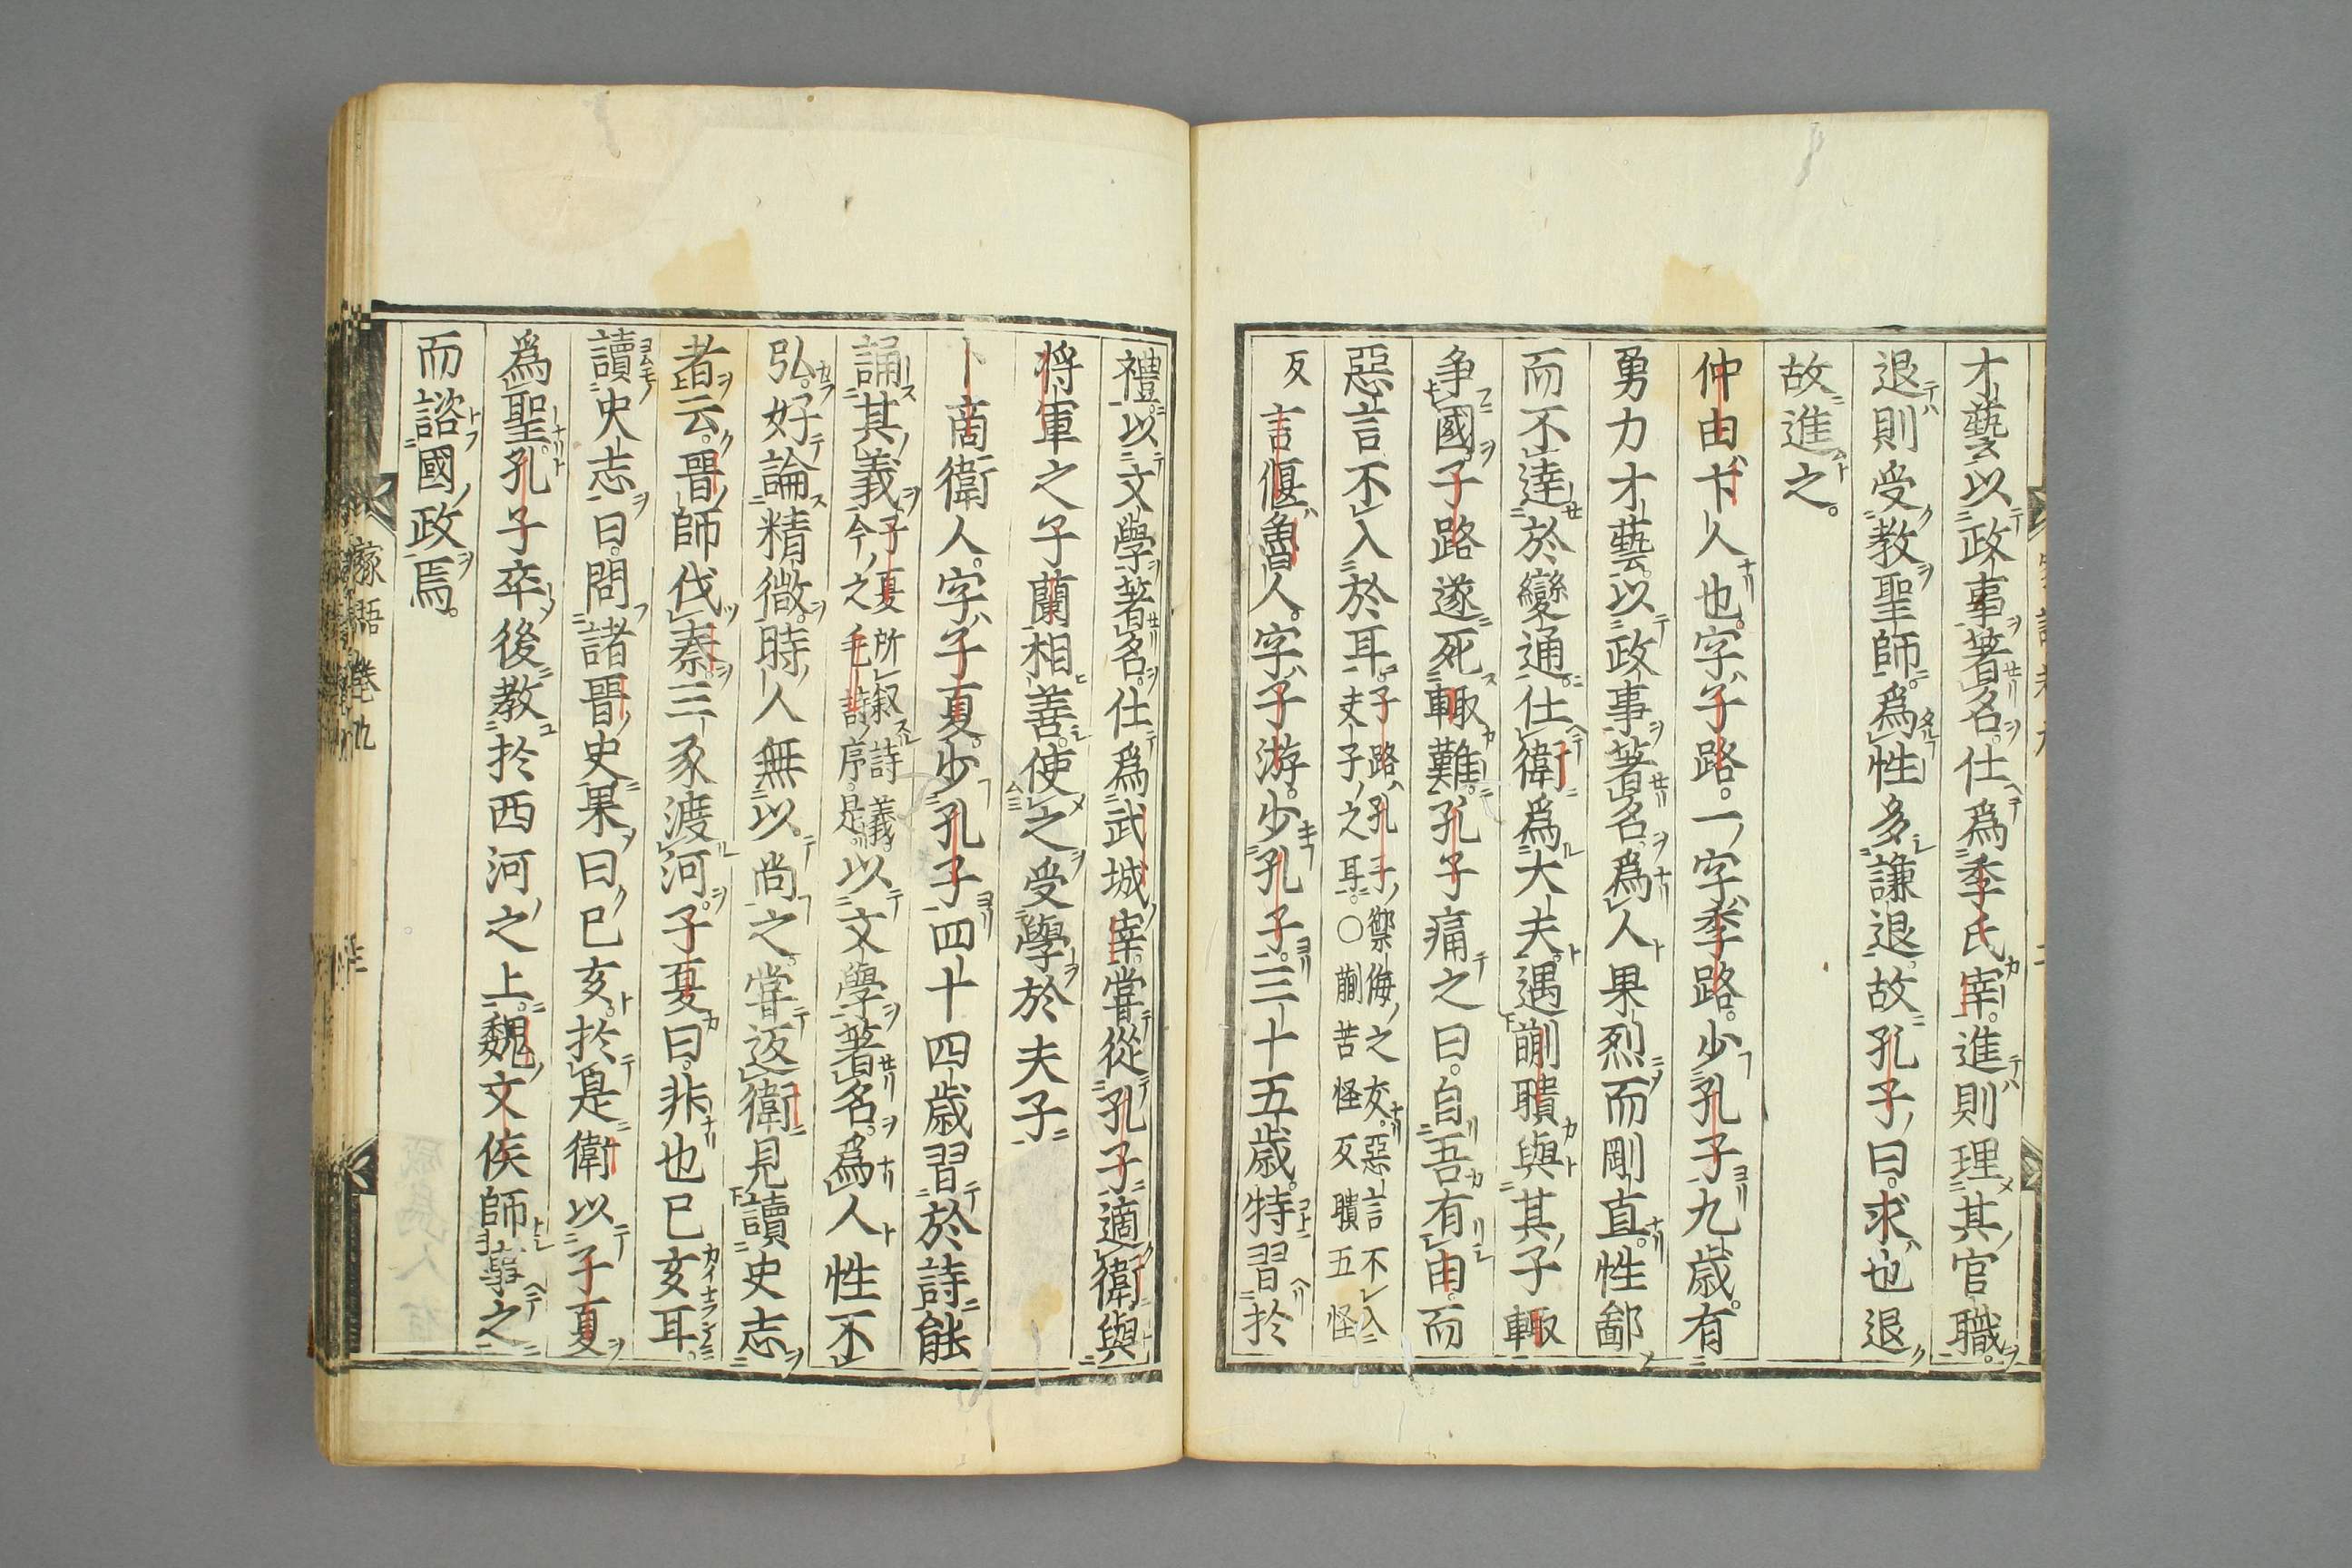 才藝以政事著名仕爲季氏宰進則理其官職
退則受教聖師爲性多謙退故孔子曰求也退
故進之
仲由卞人也字子路一字季路少孔子九歳有
勇力才藝以政事著名爲人果烈而剛直性鄙
而不達於變通仕衛爲大夫遇蒯聵與其子輒
爭國子路遂死輒難孔子痛之曰自吾有由而
惡言不入於耳子路孔子禦侮之友惡言不入
夫子之耳○蒯苦怪反聵五怪
反言偃魯人字子游少孔子三十五歳特習於
禮以文學著名仕爲武城宰嘗從孔子適衛與
将軍之子蘭相善使之受學於夫子
卜商衛人字子夏少孔子四十四歳習於詩能
誦其義子夏所叙詩義
今之毛詩序是以文學著名爲人性不
弘好論精微時人無以尚之嘗返衛見讀史志
者云晋師伐秦三豕渡河子夏曰非也巳亥耳
讀史志曰問諸晋史果曰巳亥於是衛以子夏
爲聖孔子卒後教於西河之上魏文侯師事之
而諮國政焉
家語卷九